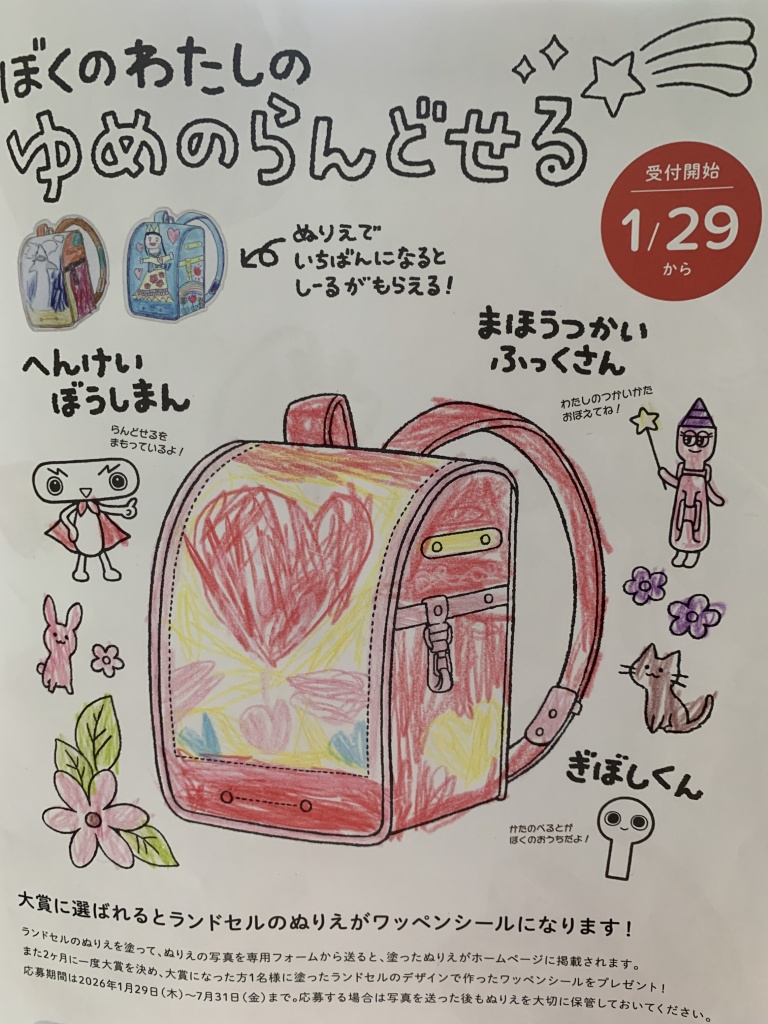 ぼくのわたしの
ゆめのらんどせる
受付開始
1/29
から
ぬりえで
いちばんになると
しーるがもらえる!
まほうつかい
ふっくさん
わたしのつかいかた
おぼえてね!
へんけい
ぼうしまん
らんどせるを
まもっているよ!
ぎぼしくん
かたのべるとが
ぼくのおうちだよ!
大賞に選ばれるとランドセルのぬりえがワッペンシールになります!
ランドセルのぬりえを塗って、ぬりえの写真を専用フォームから送ると、塗ったぬりえがホームページに掲載されます。
また2ヶ月に一度大賞を決め、大賞になった方1名様に塗ったランドセルのデザインで作ったワッペンシールをプレゼント!
応募期間は2026年1月29日(木)〜7月31日(金)まで。応募する場合は写真を送った後もぬりえを大切に保管しておいてください。